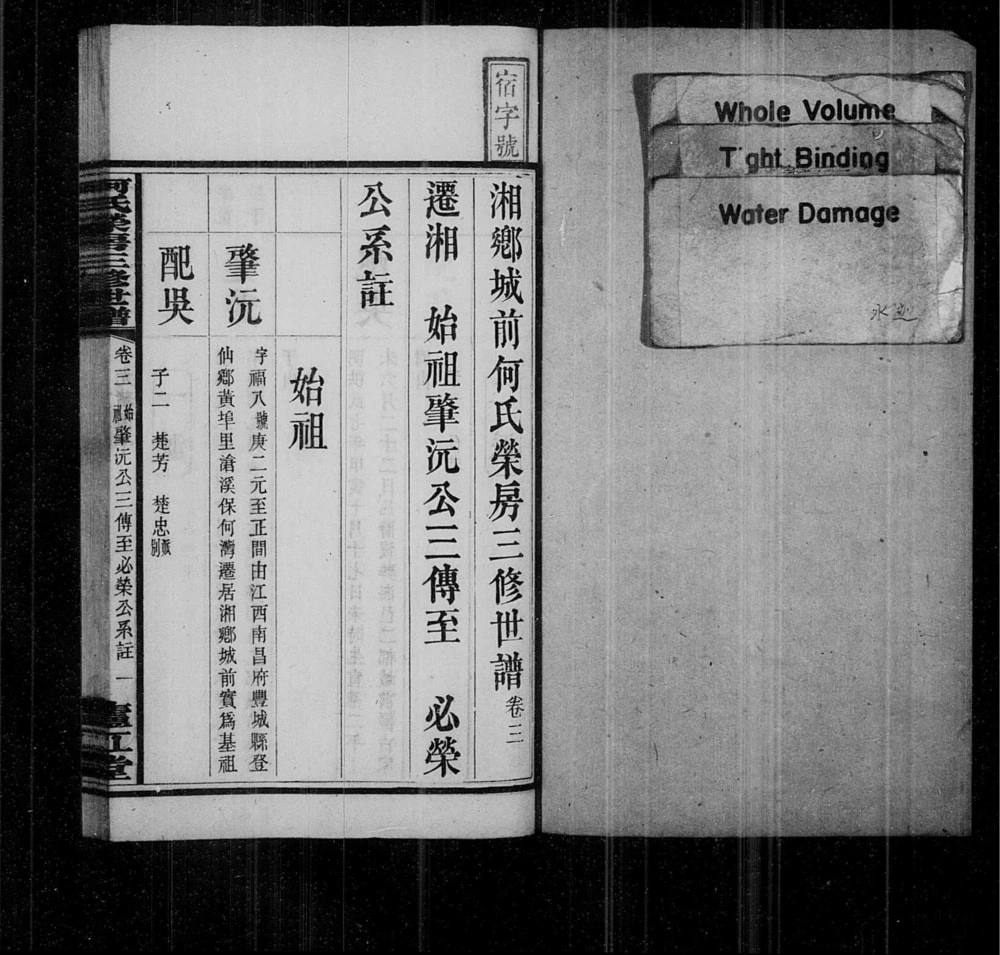 Whole Volume
Tight Binding
Water Damage
宿字號
湘鄉城前何氏榮房三修世譜卷三
遷湘 始祖肇沅公三傳至 必榮
公系註
始祖
肇沅
字福八號庚二元至正間由江西南昌府豐城縣登
仙鄉黃埠里滄溪保何灣遷居湘鄉城前實爲基祖
配吳
子二 楚芳 楚忠
何氏榮房三修世譜
卷三 始祖肇沅公三傳至必榮公系註 一
廬江堂